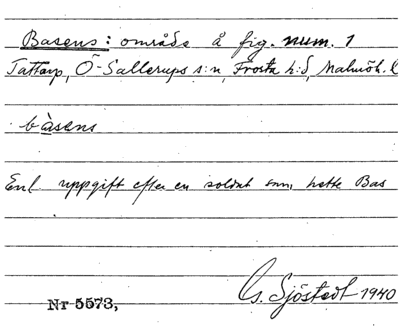 Basens: område å fig. num. 1
Tattarp, Ö-Sallerups s:n, Frosta h:d, Malmöh. l
bàsens
Enl uppgift efter en soldat som hette Bas
G. Sjöstedt 1940
Nr 5573,